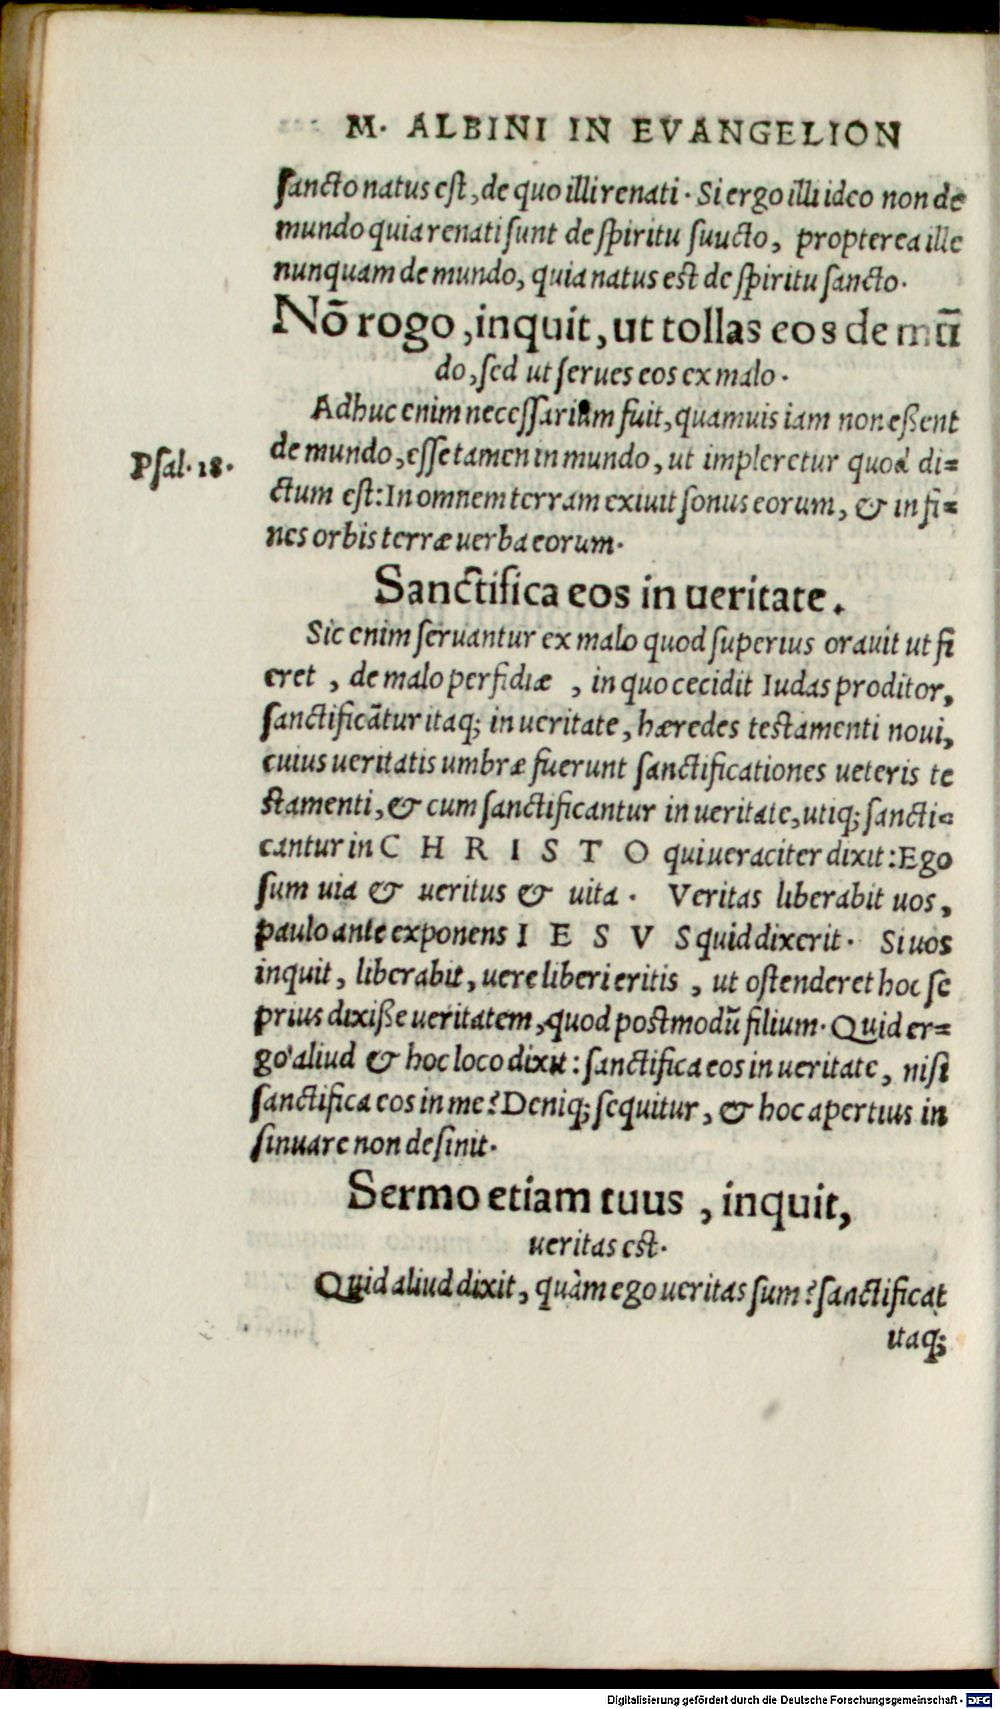 M. ALBINI IN EVANGELION
sancto natus est, de quo illi renati. Si ergo illi ideo non de
mundo quia renati sunt de spiritu suucto, propterea ille
nunquam de mundo, quia natus est de spiritu sancto.
Nõ rogo, inquit, ut tollas eos de mũ
do, sed ut serues eos ex malo.
Adhuc enim necessarium fuit, quamuis iam non eßent
de mundo, esse tamen in mundo, ut impleretur quod di=
Psal. 18.
ctum est: In omnem terram exiuit sonus eorum, & in fi=
nes orbis terræ uerba eorum.
Sanctifica eos in ueritate.
Sic enim seruantur ex malo quod superius orauit ut fi
eret, de malo perfidiæ, in quo cecidit Iudas proditor,
sanctificãtur itaq; in ueritate, hæredes testamenti noui,
cuius ueritatis umbræ fuerunt sanctificationes ueteris te
stamenti, & cum sanctificantur in ueritate, utiq; sancti=
cantur in CHRISTO qui ueraciter dixit: Ego
sum uia & ueritus & uita. Veritas liberabit uos,
paulo ante exponens IESVS quid dixerit. Si uos
inquit, liberabit, uere liberi eritis, ut ostenderet hoc se
prius dixiße ueritatem, quod postmodũ filium. Quid er=
go aliud & hoc loco dixit: sanctifica eos in ueritate, nisi
sanctifica eos in me? Deniq; sequitur, & hoc apertius in
sinuare non desinit.
Sermo etiam tuus, inquit,
ueritas est.
Quid aliud dixit, quàm ego ueritas sum? sanctificat
itaq;
Digitalisierung gefördert durch die Deutsche Forschungsgemeinschaft - DFG